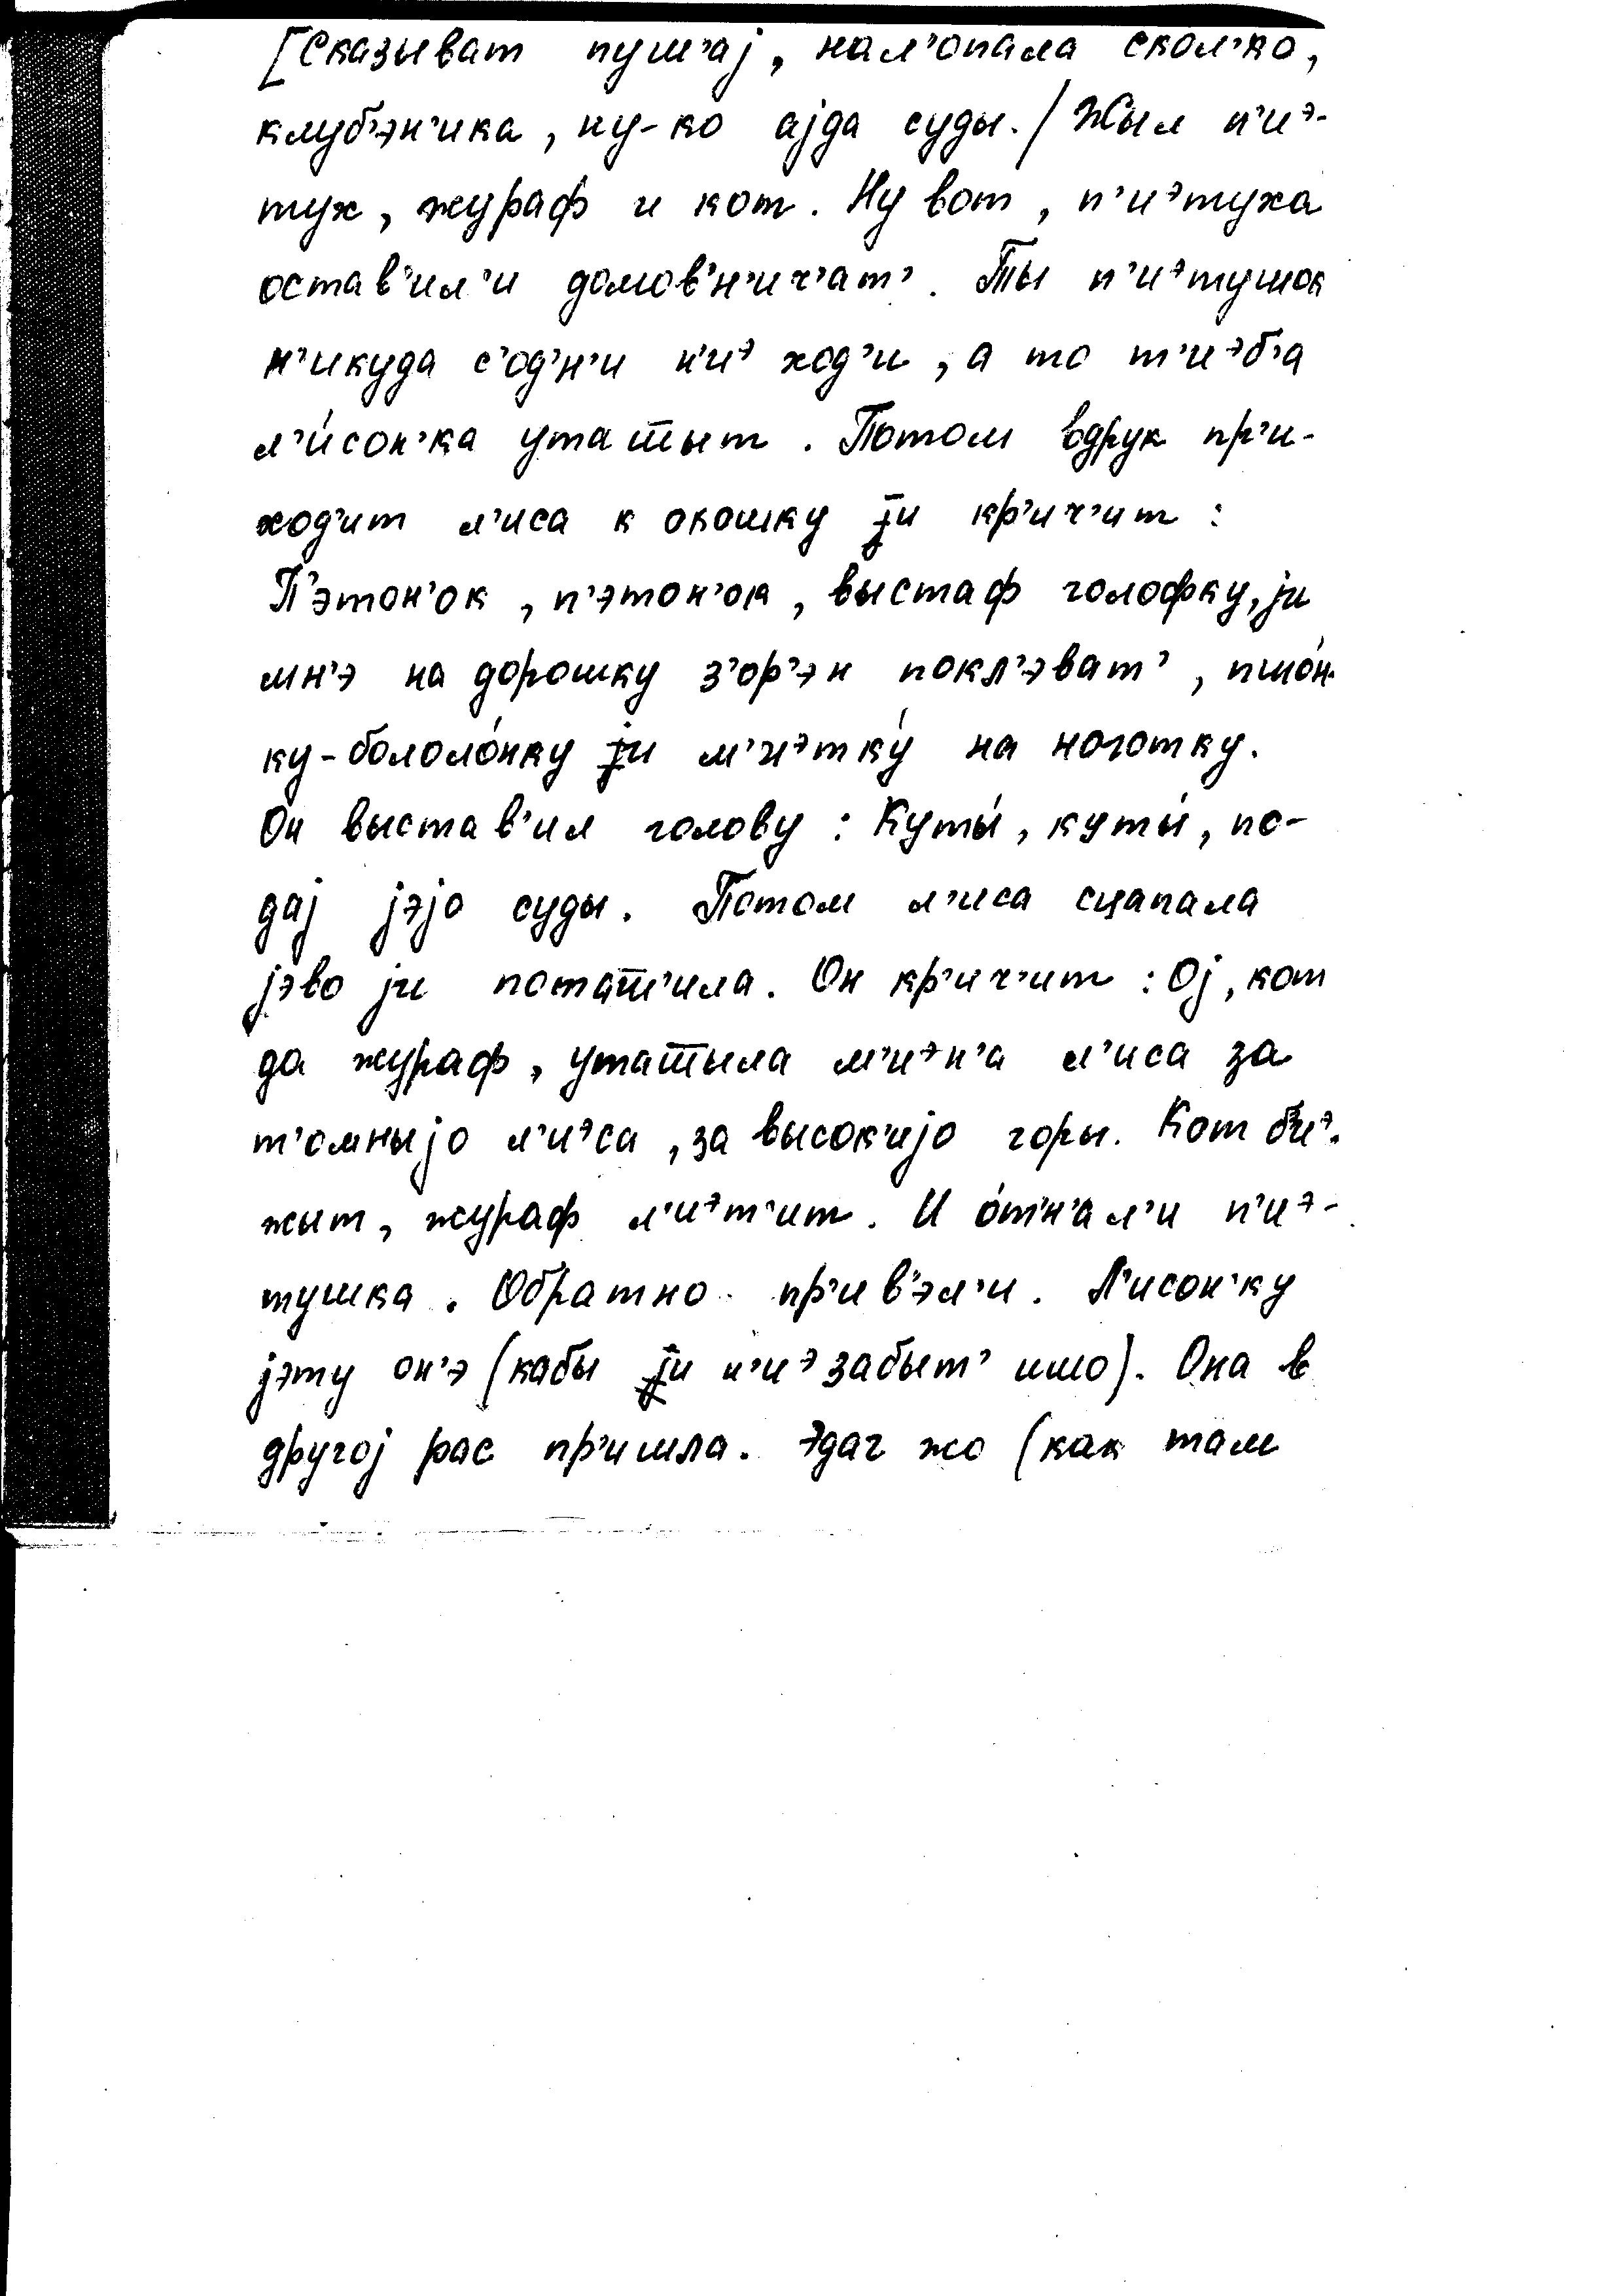 [Сказыват пуш'ај, нал'опала скол'ко,
клуб'эн'ика, ну-ко ајда суды./ Жыл п'иᵊ-
тух, жураф и кот. Ну вот, п'иᵊтуха
остав'ил'и домов'н'ич'ат'. Ты п'иᵊтушок
н'икуда с'од'н'и н'иᵊ ход'и, а то т'иᵊб'а
л'и́сон'ка уташ̅ыт. Потом вдрук пр'и-
ход'ит л'иса к окошку ји кр'ич'ит:
П'этон'ок, п'этон'ок, выстаф голофку, ји
мн'э на дорошку з'ор'эн покл'эват', пшо́н-
ку-бололо́нку ји м'иᵊтку́ на ноготку.
Он выстав'ил голову: Куты́, куты́, по-
дај јэјо суды. Потом л'иса сцапала
јэво ји поташ̅'ила. Он кр'ич'ит: Ој, кот
да жураф, уташ̅ыла м'иᵊн'а л'иса за
т'омныјо л'иᵊса, за высок'ијо горы. Кот б'иᵊ-
жыт, жураф л'иᵊт'ит. И о́тн'ал'и п'иᵊ-
тушка. Обратно пр'ив'эл'и. Л'исон'ку
јэту он'э (кабы ји н'иᵊ забыт' ишо). Она в
другој рас пр'ишла. Эдаг жо (как там